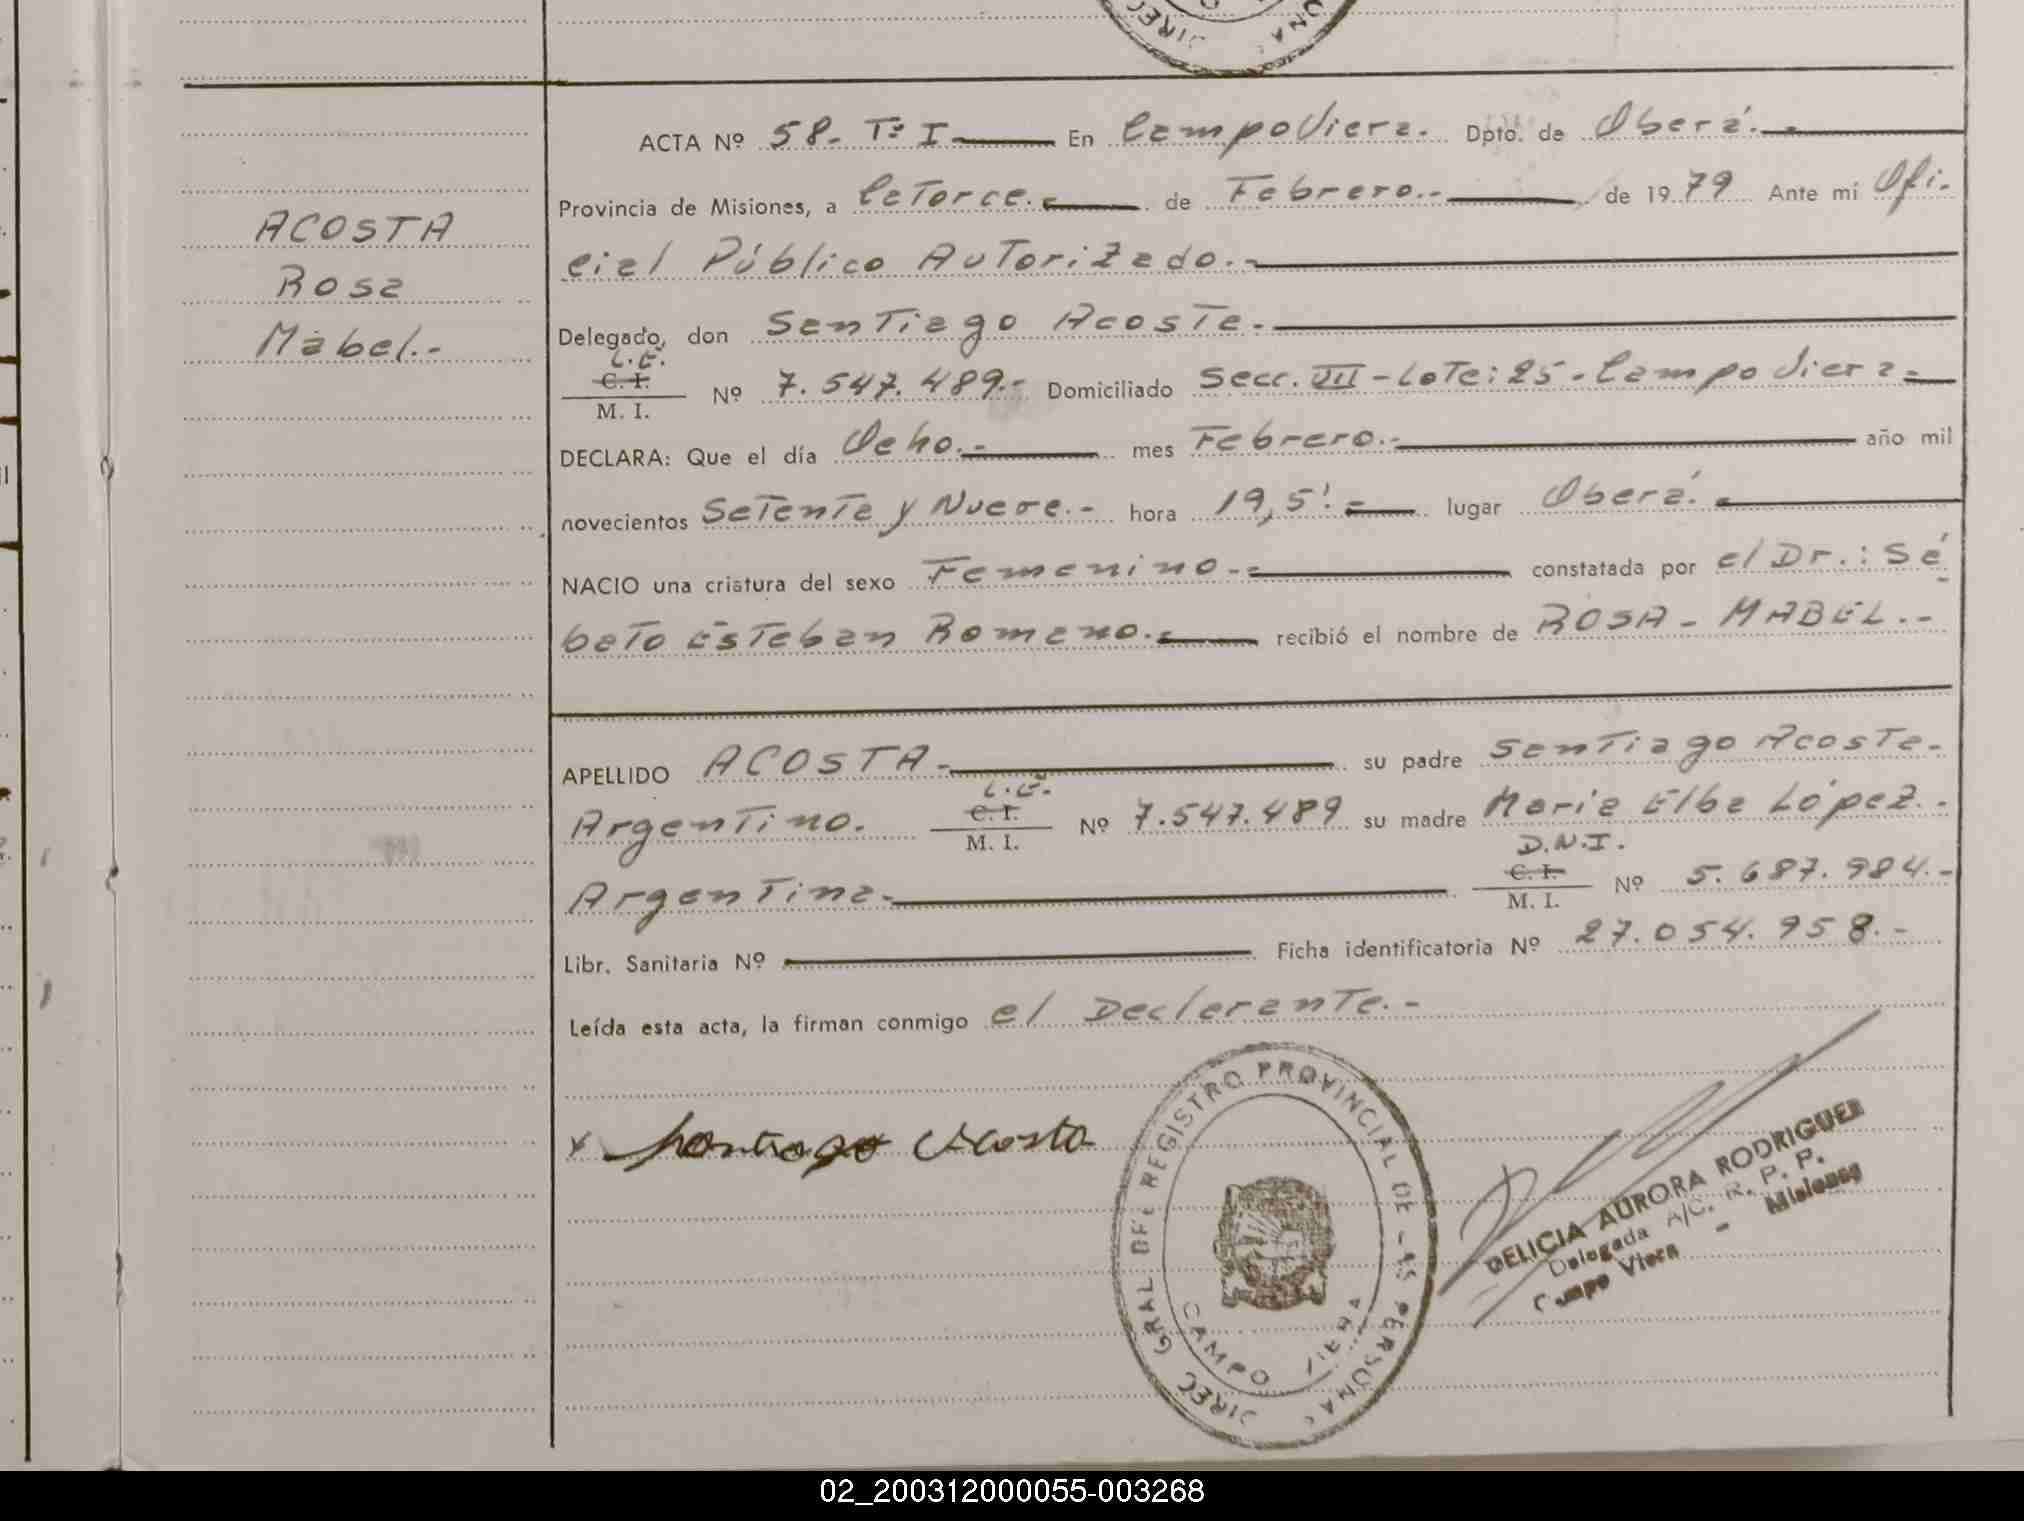 ACOSTA
Rosa
Mabel.-
ACTA Nº 58- Tº I En Campo Viera. Dpto. de Oberá.-
Provincia de Misiones, a Catorce.- de Febrero.- de 1979 Ante mi Ofi-
cial Público Autorizado.-
Delegado, don Santiago Acosta.-
L.E.
C. I.
M. I. Nº 7.547.489.- Domiciliado Secc. VII - Lote: 25 - Campo Viera -
DECLARA: Que el día Ocho.- mes Febrero.- año mil
novecientos Setenta y Nueve.- hora 19,5'.- lugar Oberá.-
NACIO una criatura del sexo Femenino.- constatada por el Dr.: Sé
bato Esteban Romano.- recibió el nombre de ROSA - MABEL.-
APELLIDO ACOSTA- su padre Santiago Acosta-
L.E.
Argentino. C. I.
M. I. Nº 7.547.489 su madre María Elba López.-
D.N.I.
Argentina- C. I.
M. I. Nº 5.687.984.-
Libr. Sanitaria Nº Ficha identificatoria Nº 27.054.958.-
Leída esta acta, la firman conmigo el Declarante.-
x Santiago Acosta
DIREC GRAL DEL REGISTRO PROVINCIAL DE LAS PERSONAS
CAMPO VIERA
DELICIA AURORA RODRIGUEZ
Delegada A/C. R. P. P.
Campo Viera - Misiones
02_200312000055-003268